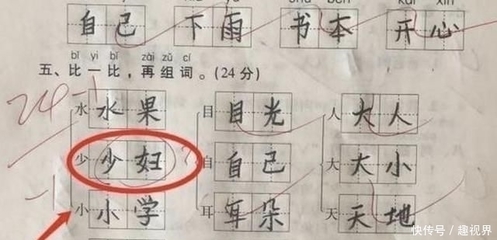 自己 下雨 书本 开心
bǐ yi bǐ zài zǔ cí
五、比一比，再组词。(24分)
24-1
水 水果 目 目光 人 大人
少 少妇 自 自己 大 大小
小 小学 耳 耳朵 天 天地
快传号 / 趣视界